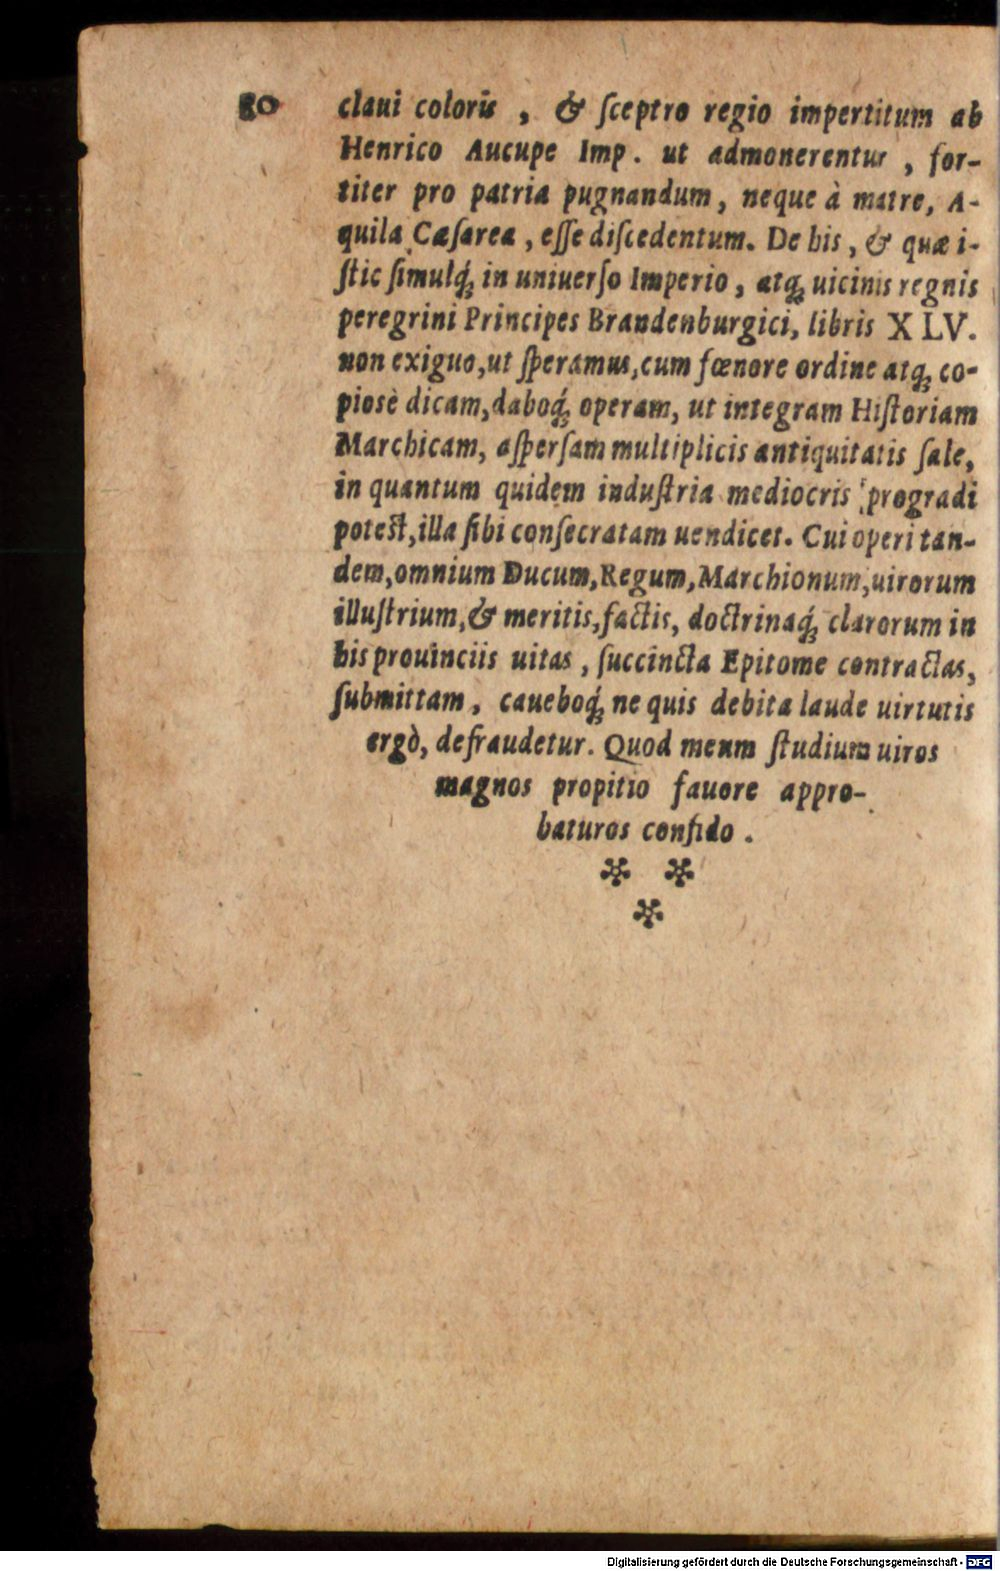 80
claui coloris , & ſceptro regio impertitum ab
Henrico Aucupe Imp. ut admonerentur , for-
titer pro patria pugnandum, neque à matre, A-
quila Cæſarea , eſſe diſcedentum. De his , & quæ i-
ſtic ſimulq́; in uniuerſo Imperio , atq; uicinis regnis
peregrini Principes Brandenburgici, libris XLV.
non exiguo, ut ſperamus, cum fœnore ordine atq; co-
piosè dicam, daboq́; operam, ut integram Hiſtoriam
Marchicam, aſperſam multiplicis antiquitatis ſale,
in quantum quidem induſtria mediocris progradi
poteſt, illa ſibi conſecratam uendicet. Cui operi tan-
dem, omnium Ducum, Regum, Marchionum, uirorum
illuſtrium, & meritis, factis, doctrinaq́; clarorum in
his prouinciis uitas , ſuccincta Epitome contractas,
ſubmittam , caueboq́; ne quis debita laude uirtutis
ergò, defraudetur. Quod meum ſtudium uiros
magnos propitio fauore appro-
baturos confido .
Digitalisierung gefördert durch die Deutsche Forschungsgemeinschaft - DFG